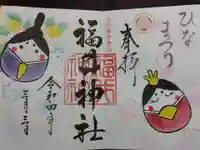 ひな
まつり
奉拝
福井神社
令和四年
三月三日